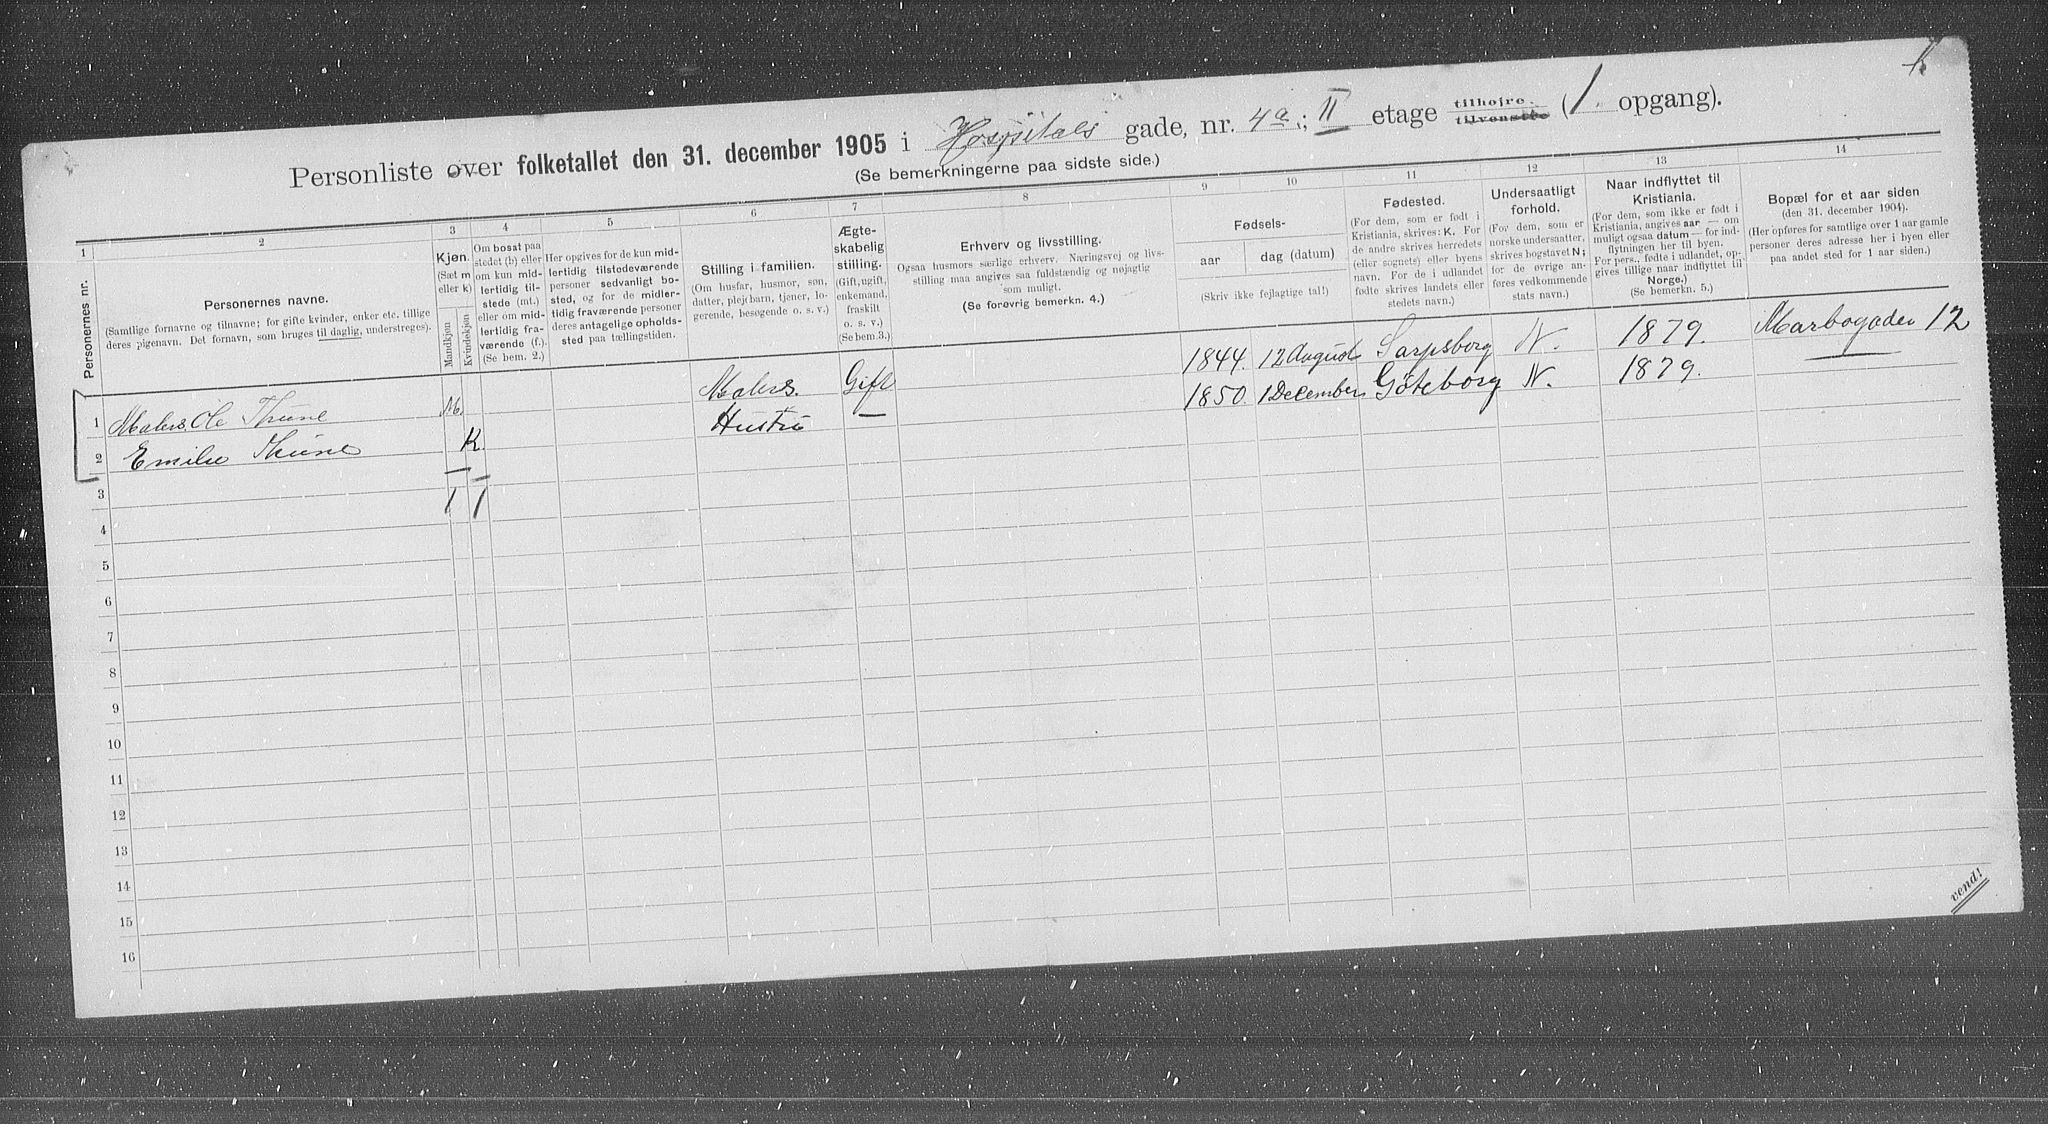 Personliste over folketallet den 31. december 1905 i Hospitals gade, nr. 4a; II etage tilhøjre. tilvenstre (1. opgang).
(Se bemerkningerne paa sidste side.)
1 2 3 4 5 6 7 8 9 10 11 12 13 14
Personernes nr.
Personernes navne.
(Samtlige fornavne og tilnavne; for gifte kvinder, enker etc. tillige
deres pigenavn. Det fornavn, som bruges til daglig, understreges).
Kjøn.
(Sæt m
eller k)
Mandkjøn
Kvindekjøn
Om bosat paa
stedet (b) eller
om kun mid-
lertidig til-
stede (mt.)
eller om mid-
lertidig fra-
værende (f.)
(Se bem. 2.)
Her opgives for de kun mid-
lertidig tilstedeværende
personer sedvanligt bo-
sted, og for de midler-
tidig fraværende personer
deres antagelige opholds-
sted paa tællingstiden.
Stilling i familien.
(Om husfar, husmor, søn,
datter, plejebarn, tjener, lo-
gerende, besøgende o. s. v.)
Ægte-
skabelig
stilling.
(Gift, ugift,
enkemand,
fraskilt
o. s. v.)
(Se bem. 3.)
Erhverv og livsstilling.
Ogsaa husmors særlige erhverv. Næringsvej og livs-
stilling maa angives saa fuldstændig og nøjagtig
som muligt.
(Se forøvrig bemerkn. 4.)
Fødsels-
aar
dag (datum)
(Skriv ikke fejlagtige tal!)
Fødested.
(For dem, som er født i
Kristiania, skrives: K. For
de andre skrives herredets
(eller sognets) eller byens
navn. For de i udlandet
fødte skrives landets eller
stedets navn.)
Undersaatligt
forhold.
(For dem, som er
norske undersaatter,
skrives bogstavet N;
for de øvrige an-
føres vedkommende
stats navn.)
Naar indflyttet til
Kristiania.
(For dem, som ikke er født i
Kristiania, angives aar — om
muligt ogsaa datum — for ind-
flytningen her til byen.
For pers., fødte i udlandet, op-
gives tillige naar indflyttet til
Norge.)
(Se bemerkn. 5.)
Bopæl for et aar siden
(den 31. december 1904).
(Her opføres for samtlige over 1 aar gamle
personer deres adresse her i byen eller
paa andet sted for 1 aar siden.)
1 Malers. Ole Thune M. Malers. Gift 1844. 12 August Sarpsborg N. 1879. Marbogaden 12
2 Emilie Thune K. Hustru — 1850. 1 December Göteborg N. 1879.
3 1 1
4
5
6
7
8
9
10
11
12
13
14
15
16
vend!